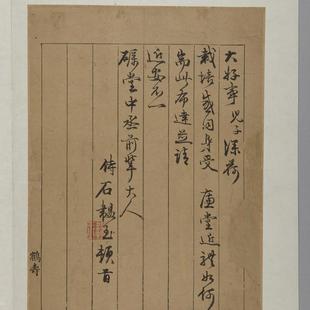 大好事兒子深荷
栽培感同身受 萱堂近體如何
耑此布達並請
近安不一
礪堂中丞前輩大人
侍石韞玉頓首
鶴壽